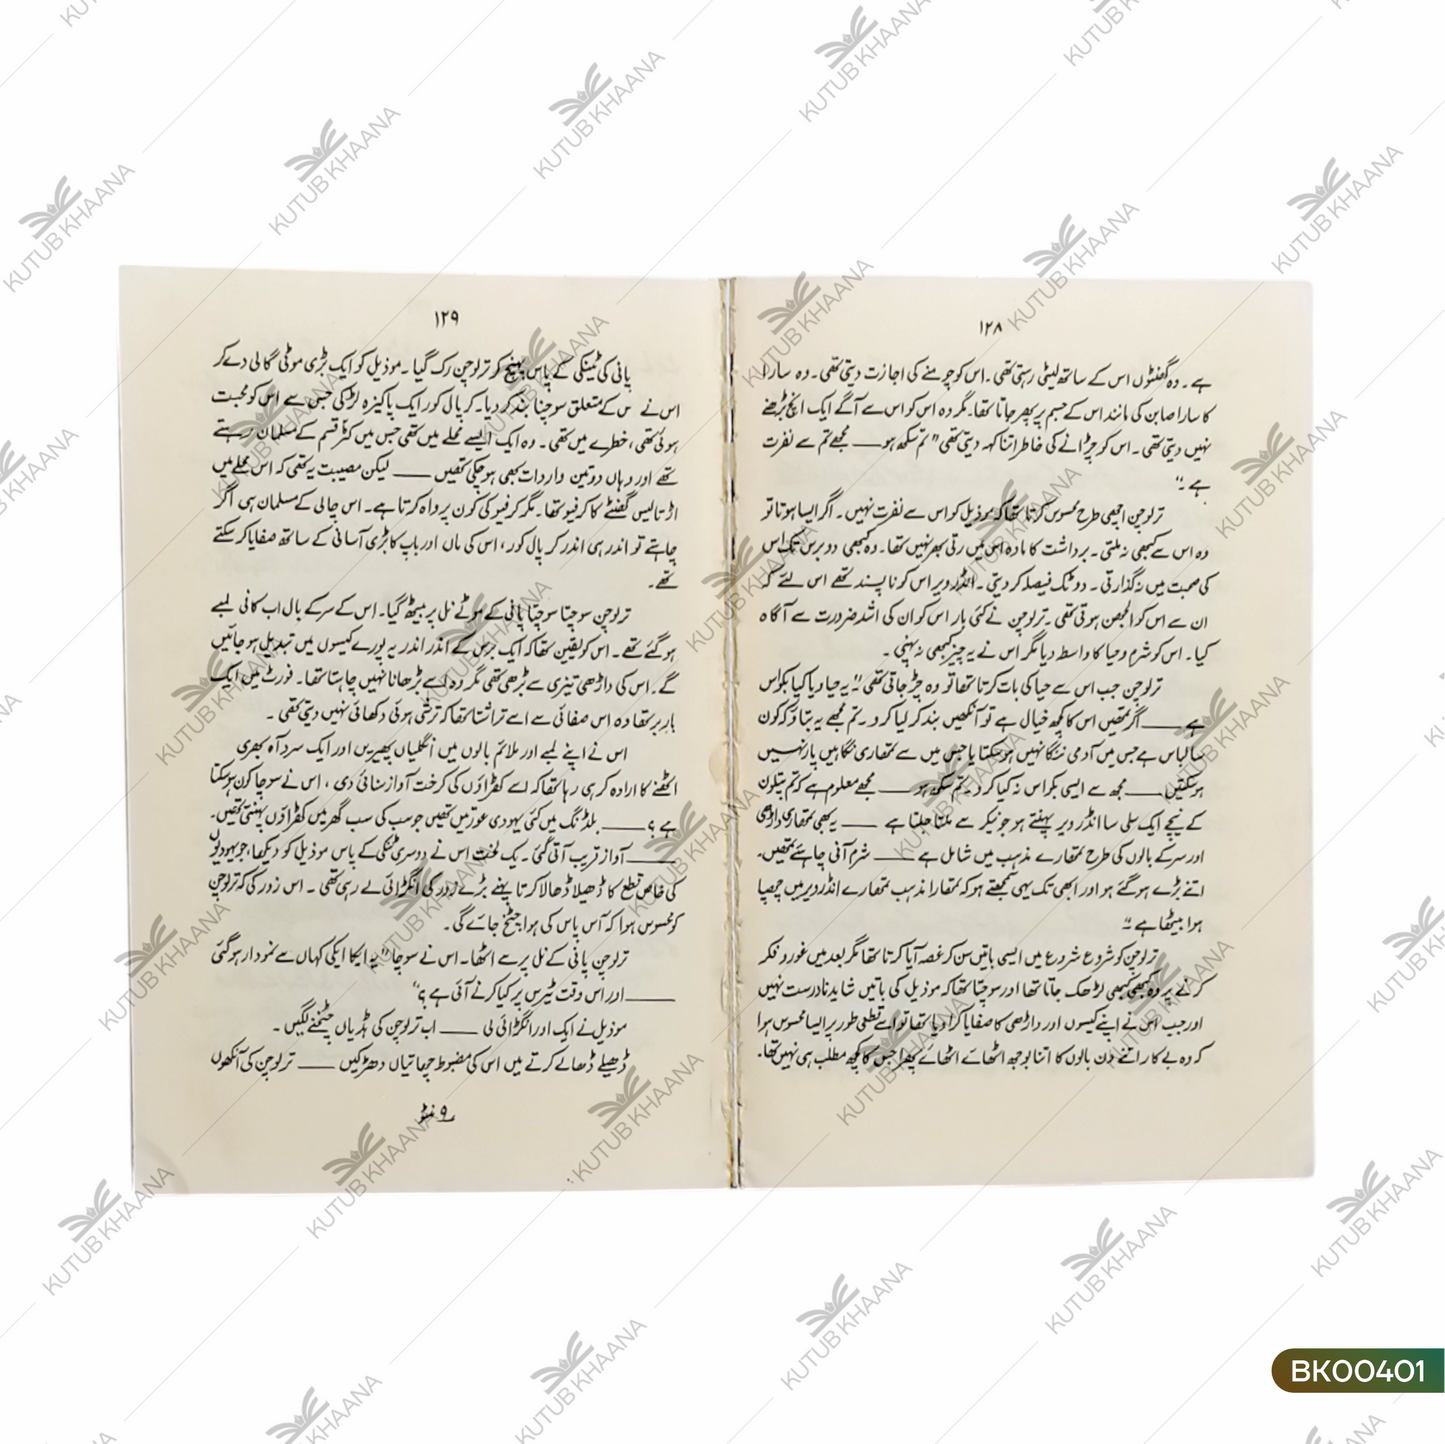 ۱۲۸
ہے۔ وہ گھنٹوں اس کے ساتھ لیٹی رہتی تھی۔ اس کو چومنے کی اجازت دیتی تھی۔ وہ سارا
کا سارا صابن کی مانند اس کے جسم پر پھر جاتا تھا۔ مگر وہ اس کو اس سے آگے ایک انچ بڑھنے
نہیں دیتی تھی۔ اس کو چڑانے کی خاطر اتنا کہہ دیتی تھی "تم سکھ ہو ـــــ مجھے تم سے نفرت
ہے۔"
ترلوچن اچھی طرح محسوس کرتا تھا کہ موذیل کو اس سے نفرت نہیں۔ اگر ایسا ہوتا تو
وہ اس سے کبھی نہ ملتی۔ برداشت کا مادہ اس میں رتی بھر نہیں تھا۔ وہ کبھی دو برس تک اس
کی صحبت میں نہ گذارتی۔ دوٹوک فیصلہ کر دیتی۔ انڈرویر اس کو ناپسند تھے اس لئے کہ
ان سے اس کو الجھن ہوتی تھی۔ ترلوچن نے کئی بار اس کو ان کی اشد ضرورت سے آگاہ
کیا۔ اس کو شرم و حیا کا واسطہ دیا مگر اس نے یہ چیز کبھی نہ پہنی۔
ترلوچن جب اس سے حیا کی بات کرتا تھا تو وہ چڑ جاتی تھی "یہ حیا ویا کیا بکواس
ہے ـــــ اگر تمھیں اس کا کچھ خیال ہے تو آنکھیں بند کر لیا کرو۔ تم مجھے یہ بتاؤ کہ کون
سا لباس ہے جس میں آدمی ننگا نہیں ہو سکتا یا جس میں سے تمھاری نگاہیں پار نہیں
ہو سکتیں ـــــ مجھ سے ایسی بکواس نہ کیا کرو۔ تم سکھ ہو ـــــ مجھے معلوم ہے کہ تم پتلون
کے نیچے ایک سلی سا انڈرویر پہنتے ہو جو نیکر سے ملتا جلتا ہے ـــــ یہ بھی تمھاری داڑھی
اور سر کے بالوں کی طرح تمھارے مذہب میں شامل ہے ـــــ شرم آنی چاہئے تمھیں۔
اتنے بڑے ہو گئے ہو اور ابھی تک یہی سمجھتے ہو کہ تمھارا مذہب تمھارے انڈرویر میں چھپا
ہوا بیٹھا ہے۔"
ترلوچن کو شروع شروع میں ایسی باتیں سن کر غصہ آیا کرتا تھا مگر بعد میں غور و فکر
کرنے پر وہ کبھی کبھی لڑھک جاتا تھا اور سوچتا تھا کہ موذیل کی باتیں شاید نادرست نہیں
اور جب اس نے اپنے کیسوں اور داڑھی کا صفایا کرا دیا تھا تو اسے قطعی طور پر ایسا محسوس ہوا
کہ وہ بے کار اتنے دن بالوں کا اتنا بوجھ اٹھائے اٹھائے پھرا جس کا کچھ مطلب ہی نہیں تھا۔
۱۲۹
پانی کی ٹینکی کے پاس پہنچ کر ترلوچن رک گیا۔ موذیل کو ایک بڑی موٹی گالی دے کر
اس نے اس کے متعلق سوچنا بند کر دیا۔ کرپال کور ایک پاکیزہ لڑکی جس سے اس کو محبت
ہوئی تھی، خطرے میں تھی۔ وہ ایک ایسے محلے میں تھی جس میں کٹر قسم کے مسلمان رہتے
تھے اور وہاں دو تین واردات بھی ہو چکی تھیں ـــــ لیکن مصیبت یہ تھی کہ اس محلے میں
اڑتالیس گھنٹے کا کرفیو تھا۔ مگر کرفیو کی کون پرواہ کرتا ہے۔ اس چالی کے مسلمان ہی اگر
چاہتے تو اندر ہی اندر کرپال کور، اس کی ماں اور باپ کا بڑی آسانی کے ساتھ صفایا کر سکتے
تھے۔
ترلوچن سوچتا سوچتا پانی کے موٹے نل پر بیٹھ گیا۔ اس کے سر کے بال اب کافی لمبے
ہو گئے تھے۔ اس کو یقین تھا کہ ایک برس کے اندر اندر یہ پورے کیسوں میں تبدیل ہو جائیں
گے۔ اس کی داڑھی تیزی سے بڑھی تھی مگر وہ اسے بڑھانا نہیں چاہتا تھا۔ فورٹ میں ایک
باربر تھا وہ اس صفائی سے اسے تراشتا تھا کہ ترشی ہوئی دکھائی نہیں دیتی تھی۔
اس نے اپنے لمبے اور ملائم بالوں میں انگلیاں پھیریں اور ایک سرد آہ بھری
اٹھنے کا ارادہ کر ہی رہا تھا کہ اسے کھڑاؤں کی کرخت آواز سنائی دی، اس نے سوچا کون ہو سکتا
ہے؟ ـــــ بلڈنگ میں کئی یہودی عورتیں تھیں جو سب کی سب گھر میں کھڑاؤں پہنتی تھیں۔
ـــــ آواز قریب آتی گئی۔ یک لخت اس نے دوسری ٹنکی کے پاس موذیل کو دیکھا، جو یہودیوں
کی خاص قطع کا ڈھیلا ڈھالا کرتا پہنے بڑے زور کی انگڑائی لے رہی تھی۔ اس زور کی کہ ترلوچن
کو محسوس ہوا کہ آس پاس کی ہوا چٹخ جائے گی۔
ترلوچن پانی کے نل پر سے اٹھا۔ اس نے سوچا "یہ ایکا ایکی کہاں سے نمودار ہو گئی
ـــــ اور اس وقت ٹیرس پر کیا کرنے آئی ہے؟"
موذیل نے ایک اور انگڑائی لی ـــــ اب ترلوچن کی ہڈیاں چٹخنے لگیں۔
ڈھیلے ڈھالے کرتے میں اس کی مضبوط چھاتیاں دھڑکیں ـــــ ترلوچن کی آنکھوں
۹ منٹو
BK00401
KUTUB KHAANA